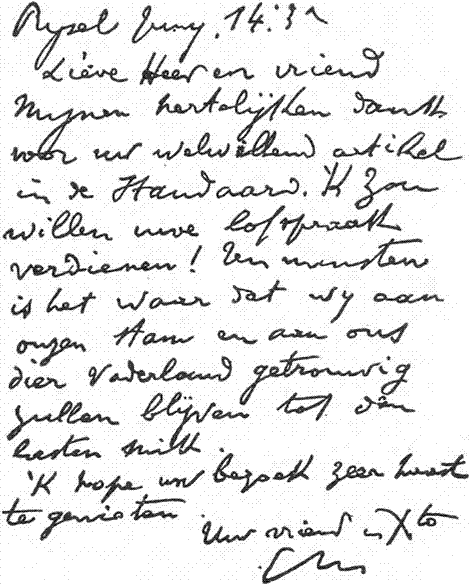 Rysel Juny, 14. 3
Liéve Heer en vriend
Mijnen hertelijken dank
voor uw welwillend artikel
in de Standaard. 'K Zou
willen uwe lofspraak
verdienen! Ten minsten
is het waar dat wy aan
onzen stam en aan ons
dier Vaderland getrouwig
zullen blijven tot den
lesten snik.
'K hope uw bezoek zeer haast
te genieten.
Uw vriend in Xto